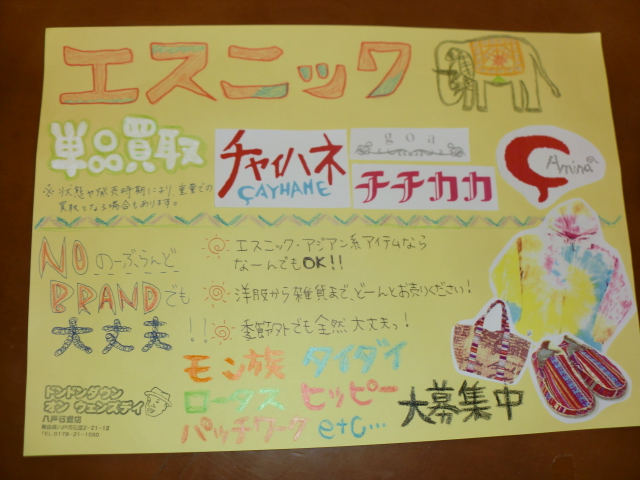 エスニック
単品買取
※状態や発売時期により、重量での
買取となる場合もあります。
チャイハネ
ÇAYHANE
goa
チチカカ
Amina
NO のーぶらんど
BRANDでも
大丈夫!!
エスニック・アジアン系アイテムなら
なーんでもOK!!
洋服から雑貨まで、どーんとお売りください!
季節外でも全然大丈夫っ!
モン族 タイダイ
ロータス ヒッピー
パッチワーク etc...
大募集中
ドンドンダウン
オン ウェンズデイ